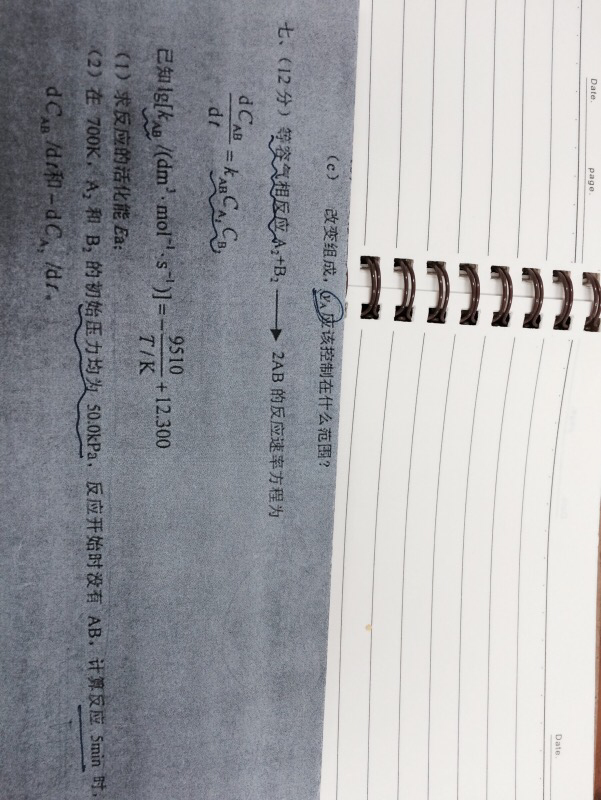 Date.
page.
Date
(c) 改变组成，y_A 应该控制在什么范围？
七、（12 分）等容气相反应 A₂+B₂ ⟶ 2AB 的反应速率方程为
dC_AB/dt = k_AB C_A₂ C_B₂
已知 lg[k_AB /(dm³·mol⁻¹·s⁻¹)] = −9510/(T/K) + 12.300
（1）求反应的活化能 Ea;
（2）在 700K，A₂ 和 B₂ 的初始压力均为 50.0kPa，反应开始时没有 AB，计算反应 5min 时，
dC_AB /dt和－dC_A₂ /dt。